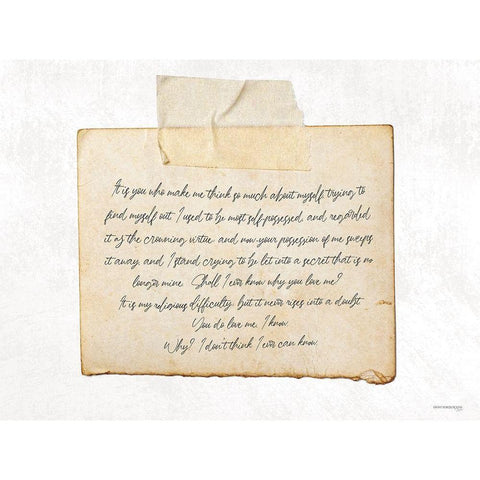 It is you who make me think so much about myself, trying to
find myself out. I used to be most self-possessed, and regarded
it as the crowning virtue, and now your possession of me sweeps
it away, and I stand crying to be let into a secret that is no
longer mine. Shall I ever know why you love me?
It is my religious difficulty, but it never rises into a doubt.
You do love me, I know.
Why? I don't think I ever can know.